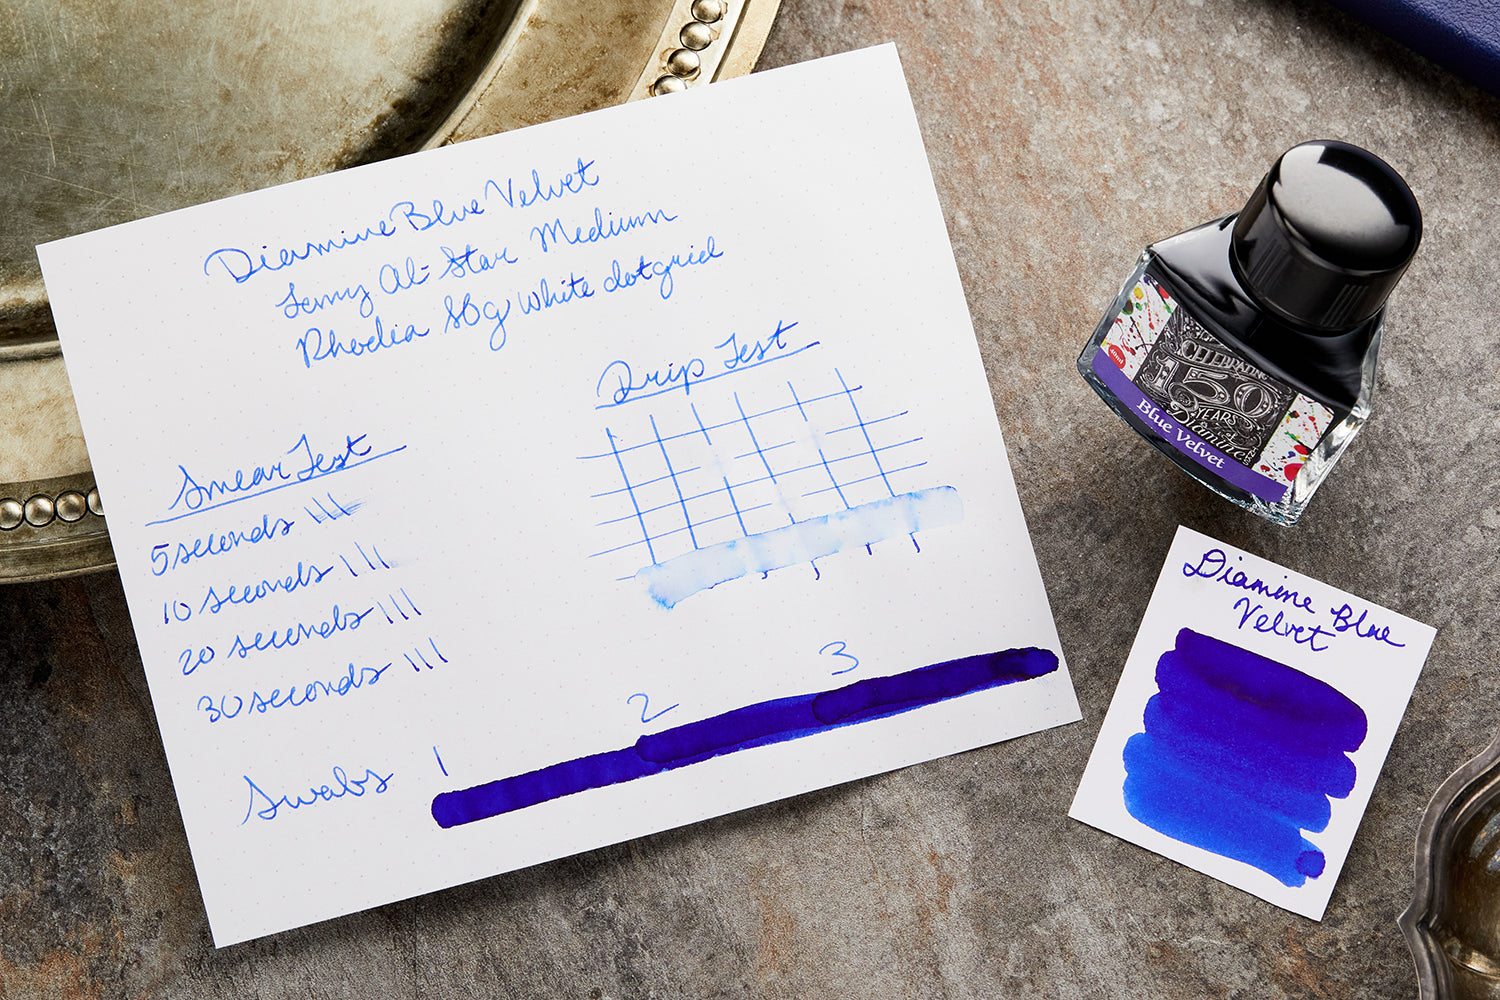 Diamine Blue Velvet
Lamy Al-Star Medium
Rhodia 80g White dotgrid
Drip Test
Smear Test
5 seconds
10 seconds
20 seconds
30 seconds
Swabs
1
2
3
CELEBRATING
150
YEARS
Diamine
Blue Velvet
Diamine Blue
Velvet